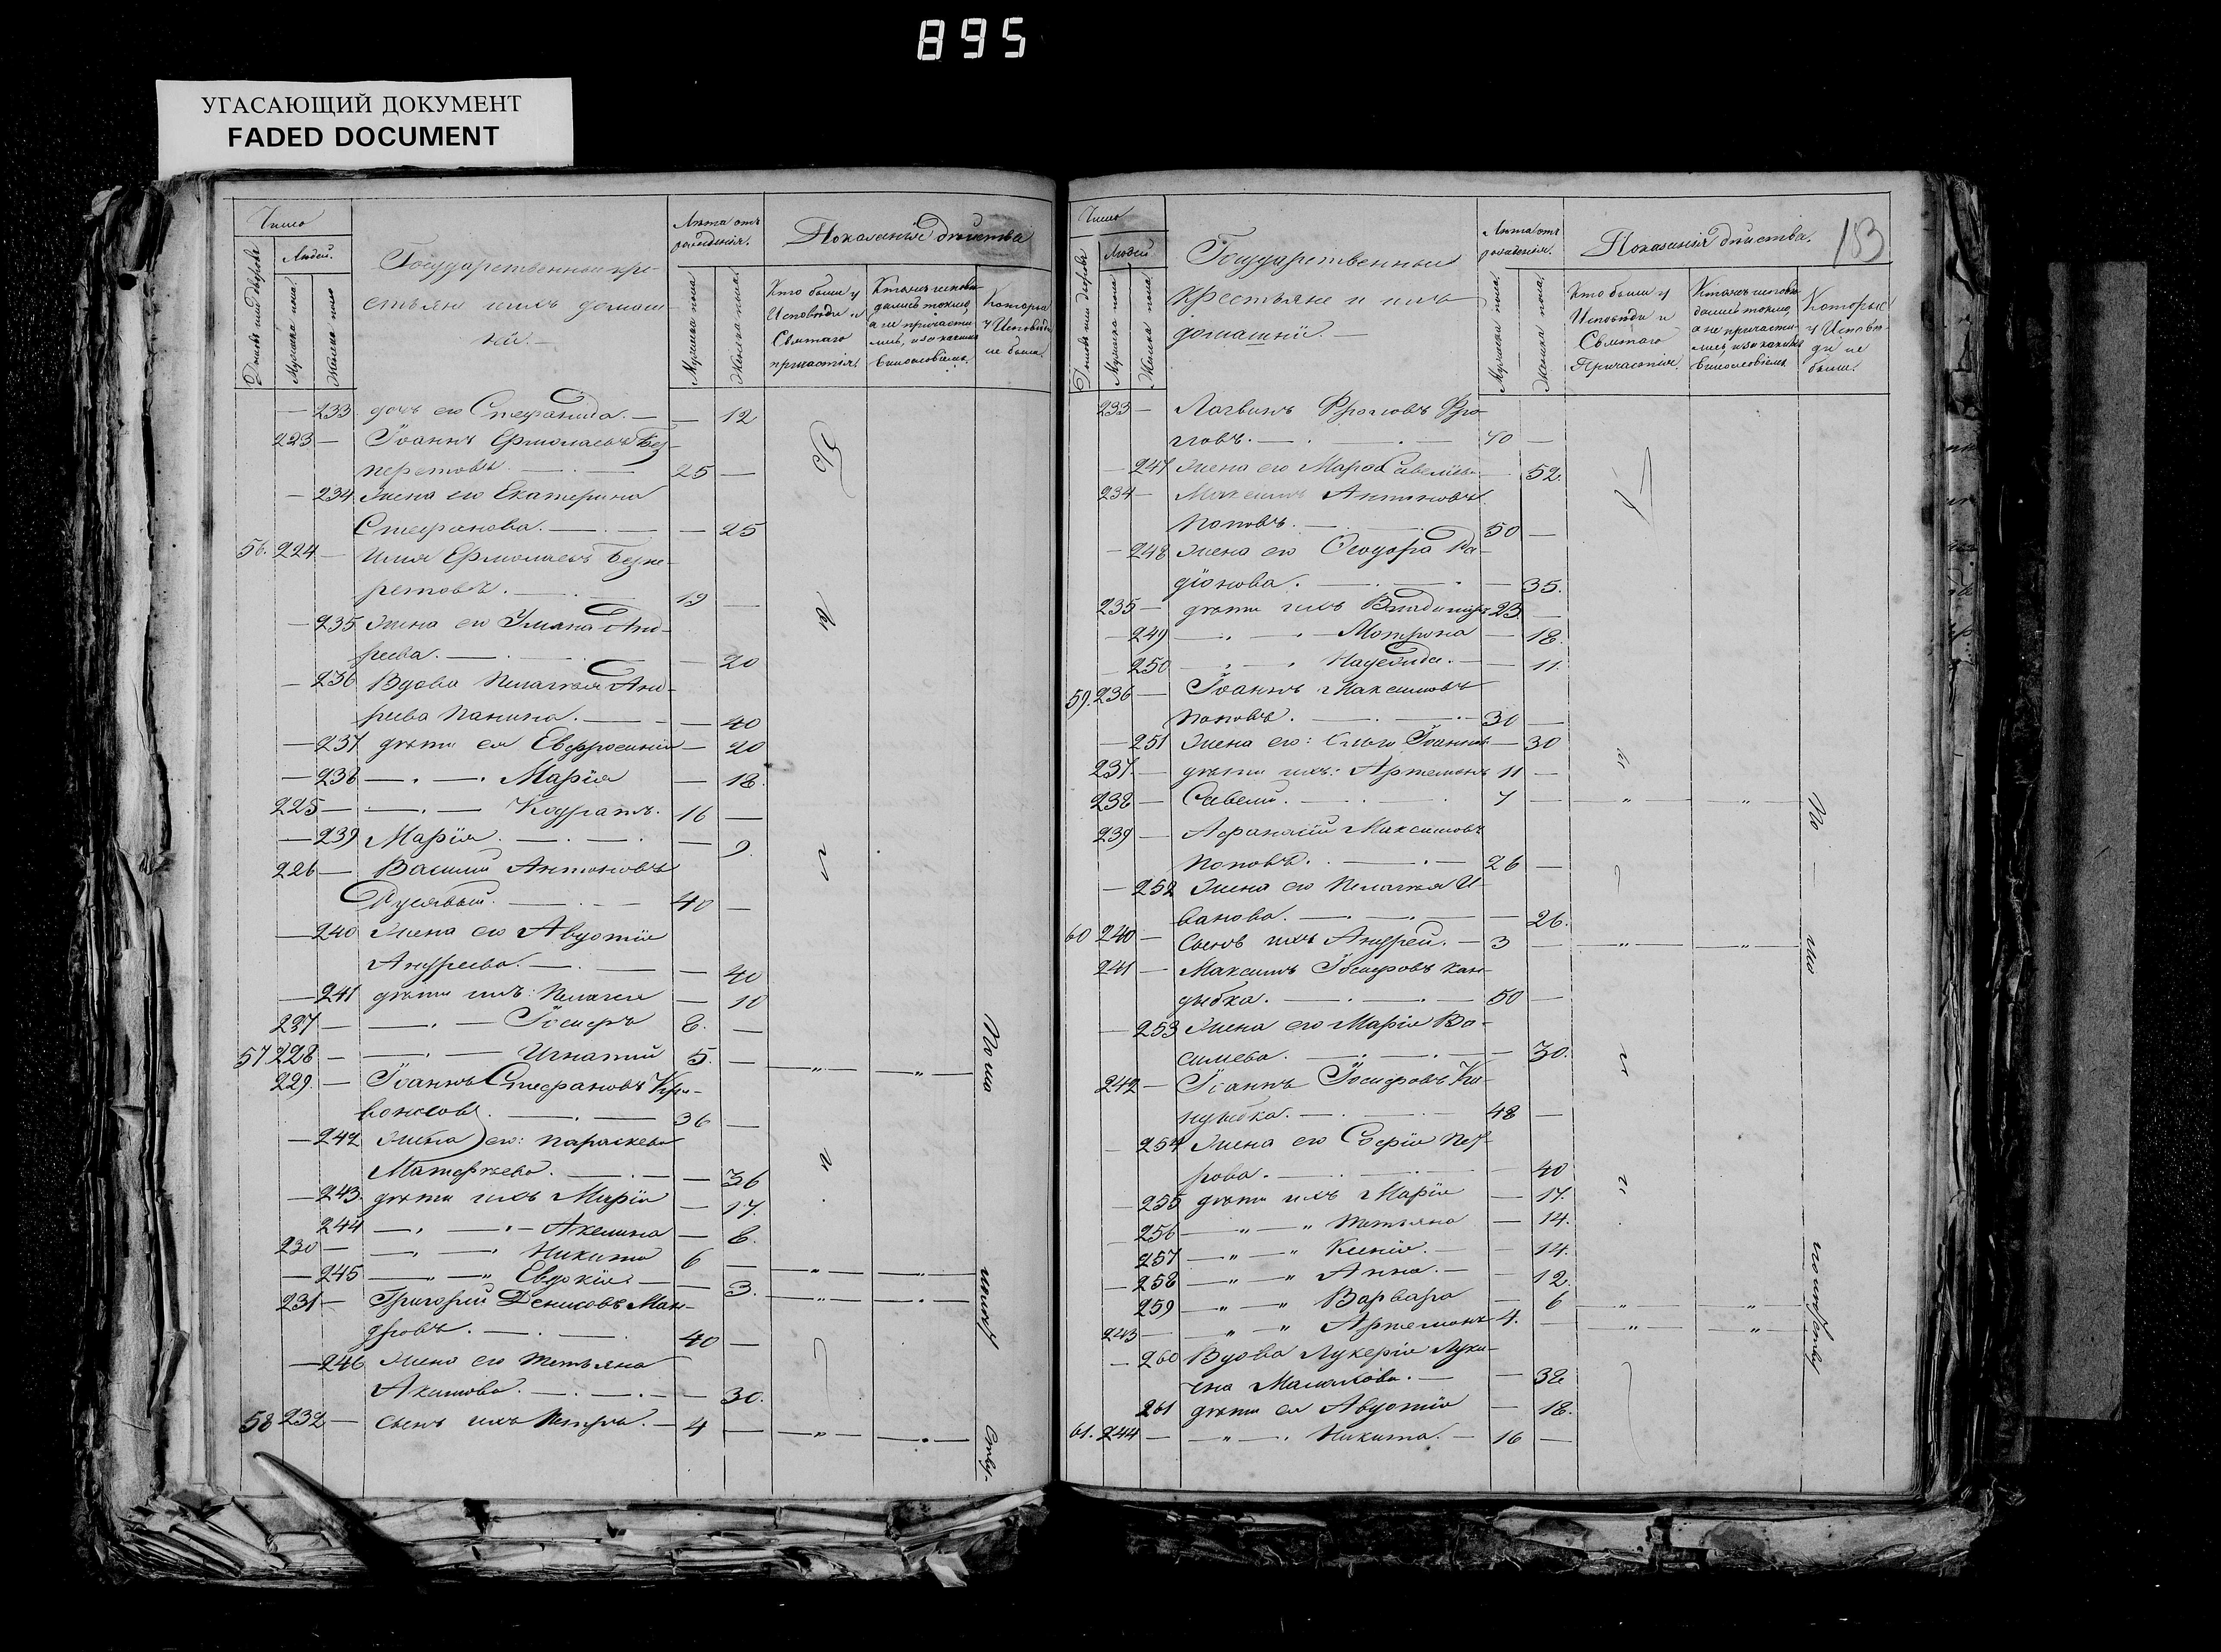 895
УГАСАЮЩИЙ ДОКУМЕНТ
FADED DOCUMENT
Число
Людей.
Домовъ или дворовъ
Мужеска пола.
Женска пола
Государственныи кре-
стьяне ихъ домаш
ніи. —
Лѣта отъ
рожденія.
Мужеска пола
Женска пола.
Показанія дѣйства
Кто были у
Исповѣди и
Святаго
причастія.
Кто исповѣ-
дались токмо,
а не причасти-
лись, и за какимъ
винословіемъ.
Которые
у Исповѣди
не были.
— 233 дочь его Стефанида. — — 12
223 — Іоаннъ Ермолаевъ Без-
перстовъ. — 25 —
— 234 Жена его Екатерина
Стефанова. — — 25
56. 224 — Илія Ермолаевъ Безпе-
рстовъ. — 19 —
— 235 Жена его Уліана Анд-
реева. — — 20
— 236 Вдова Пелагея Анд-
реева Панина. — — 40
— 237 дѣти ея Евфросинія — 20
— 238 — " — Марія — 18.
225 — — " — Кодратъ. 16 —
— 239 Марія — — 9.
226 — Василій Антоновъ
40 —
— 240 Жена его Авдотія
Андреева. — — 40
— 241 дѣти ихъ: Пелагея — 10
227 — — " — Іосифъ 8. —
57 228 — — " — Игнатій 5. — " — " —
229. — Іоаннъ Стефановъ Кри-
воносовъ. — 36 —
— 242 Жена его: Параскева
Матфѣева. — — 36
— 243. дѣти ихъ Марія — 17.
244 — " — Акелина — 8.
230 — — " — Никита 6 — " — " —
— 245 — " — Евдокія — — 3. — " — " —
231 — Григорій Денисовъ Ман-
дровъ. — 40 —
— 246 Жена его Татьяна
Акимова. — — 30.
58 232 — сынъ ихъ Петръ. — 4 — " — " —
По мало
183
Число
Людей
Домовъ или дворовъ
Мужеска пола
Женска пола.
Государственныи
крестьяне и ихъ
домашніи. —
Лѣта отъ
рожденія.
Мужеска пола.
Женска пола.
Показанія дѣйства.
Кто были у
Исповѣди и
Святаго
Причастія.
Кто исповѣ-
дались токмо,
а не причасти-
лись, и за какимъ
винословіемъ
Которые
у Исповѣ-
ди не
были.
233 — Логвинъ Фроловъ Фро-
ловъ. — 40 —
— 247 Жена его Марфа Савельева — 52.
234 — Максимъ Антоновъ
Поповъ. — 50 —
— 248 Жена его Ѳеодора Ра-
діонова. — — 35.
235 — дѣти ихъ Владимиръ 23. —
— 249 — " — Матрона — 18.
— 250 — " — Надежда. — — 11.
59. 236 — Іоаннъ Максимовъ
Поповъ. — 30 —
— 251 Жена его: Іоаннова — 30
237. — дѣти ихъ: Артемонъ 11 —
238 — Савелій. — 7 — " — " —
239 — Аѳанасій Максимовъ
Поповъ. — 26 —
— 252 Жена его Пелагея И-
ванова. — — 26.
60 240 — сынъ ихъ Андрей. — 3 — " — " —
241 — Максимъ Іосифовъ Кан-
дыбка. — 50 —
— 253 Жена его Марія Ва-
сильева. — — 30.
242 — Іоаннъ Іосифовъ Кан-
дыбка. — 48 —
— 254 Жена его Софія Пет-
рова. — — 40
— 255 дѣти ихъ Марія — 17.
— 256 — " — " Татьяна — 14.
257 — " — " Ксенія. — — 14.
— 258 — " — " Анна. — — 12.
259 — " — " Варвара — 6 — " — " —
243 — — " — " Артемонъ 4. — " — " —
— 260 Вдова Лукерія Луки-
чна — — 38
261 дѣти ея Авдотія — 18.
61. 244 — — " — " Никита. — 16 —
По мало